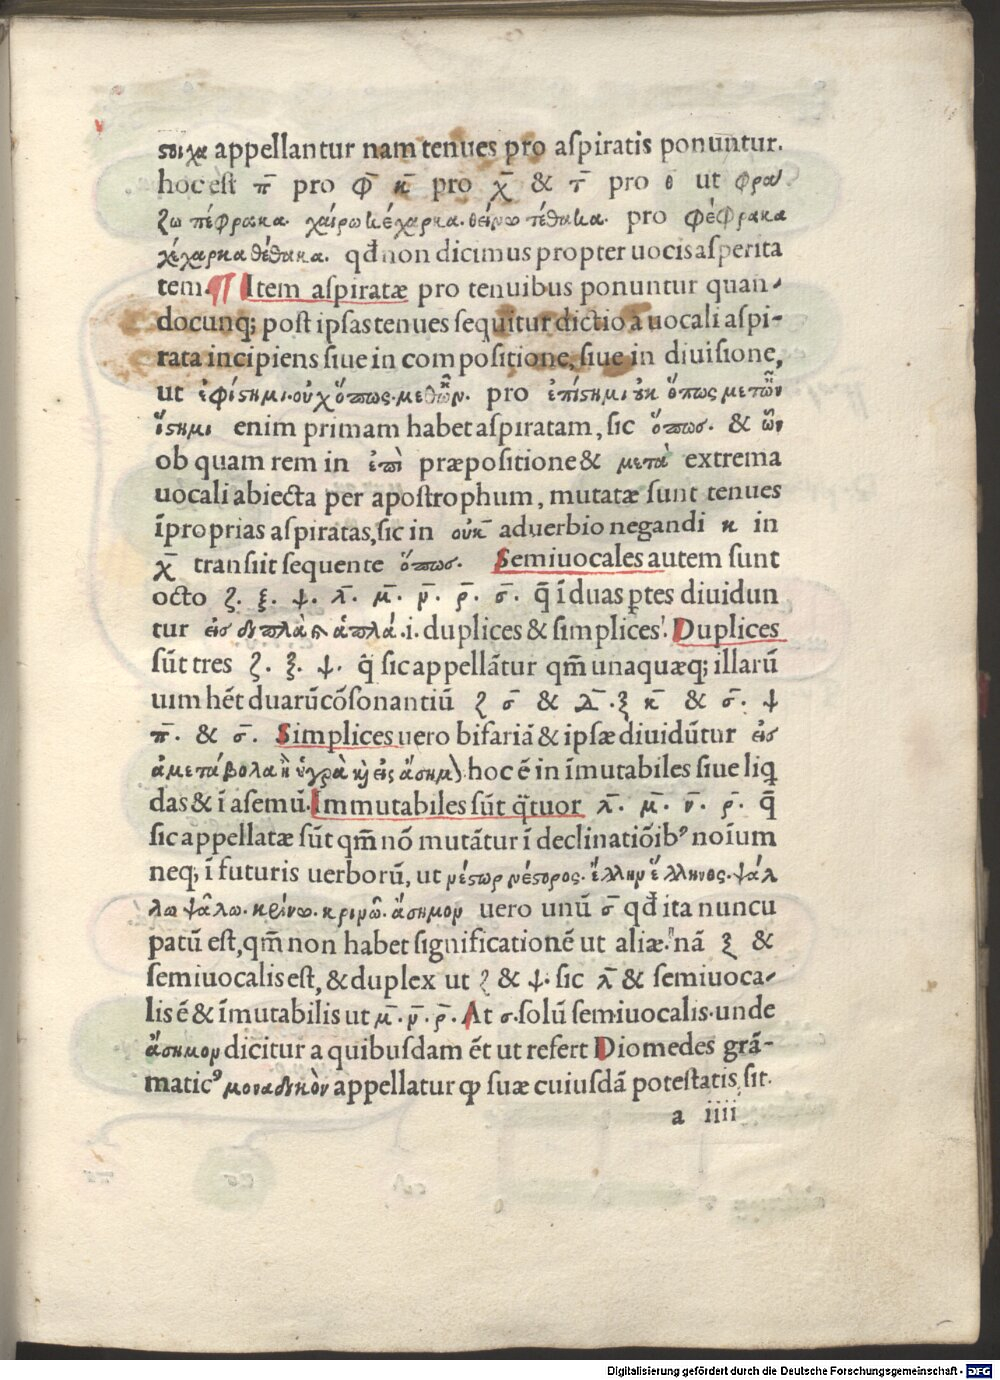 ςοιχα appellantur nam tenues pro aſpiratis ponuntur.
hoc eſt π̄ pro φ̄ κ̄ pro χ̄ & τ̄ pro θ ut φρα/
ζω πέφρακα. χαίρω κέχαρκα. θείνω τέθηκα. pro φέφρακα
χέχαρκα θέθηκα. qđ non dicimus propter uocis aſperita
tem. ¶ Item aſpiratæ pro tenuibus ponuntur quan-
docunq; poſt ipſas tenues ſequitur dictio a uocali aſpi-
rata incipiens ſiue in compoſitione, ſiue in diuiſione,
ut ἐφίςημι. οὐχ ὅπως. μεθῶν. pro ἐπίςημι ȣκ ὅπως μετῶν
ἵςημι enim primam habet aſpiratam, ſic ὅπωσ. & ὧν
ob quam rem in ἐπὶ præpoſitione & μετὰ extrema
uocali abiecta per apoſtrophum, mutatæ ſunt tenues
ī proprias aſpiratas, ſic in οὐκ̄ aduerbio negandi κ in
χ̄ tranſiit ſequente ὅπωσ. Semiuocales autem ſunt
octo ζ. ξ. ψ. λ̄. μ̄. ν̄. ρ̄. σ̄. q̄ ī duas ꝑtes diuidun
tur εἰσ διπλὰ ἁπλά .i. duplices & ſimplices. Duplices
ſūt tres ζ. ξ. ψ. q̄ ſic appellātur qm̄ unaquæq; illarū
uim hēt duarū cōſonantiū ζ σ̄ & δ̄. ξ κ̄ & σ̄. ψ
π̄. & σ̄. Simplices uero bifariā & ipſæ diuidūtur εἰσ
ἀμετάβολα ἢ ὑγρὰ ϗ εἰς ἄσημ) hoc ē in īmutabiles ſiue liq
das & ī aſemū. Immutabiles ſūt q̈tuor λ̄. μ̄. ν̄. ρ̄. q̄
ſic appellatæ ſūt qm̄ nō mutātur ī declinatiōibꝰ noīum
neq; ī futuris uerborū, ut νέςωρ νέςορος. ἕλλην ἕλληνος. ψάλ
λω ψαλῶ. κρίνω. κρινῶ. ἄσημον uero unū σ̄ qđ ita nuncu
patū eſt, qm̄ non habet ſignificationē ut aliæ. nā ξ &
ſemiuocalis eſt, & duplex ut ζ & ψ. ſic λ̄ & ſemiuoca-
lis ē & īmutabilis ut μ̄. ν̄. ρ̄. At σ. ſolū ſemiuocalis. unde
ἄσημον dicitur a quibuſdam ēt ut refert Diomedes grā-
maticꝰ μοναδικὸν appellatur ꝙ ſuæ cuiuſdā poteſtatis ſit.
a iiii
Digitalisierung gefördert durch die Deutsche Forschungsgemeinschaft - DFG